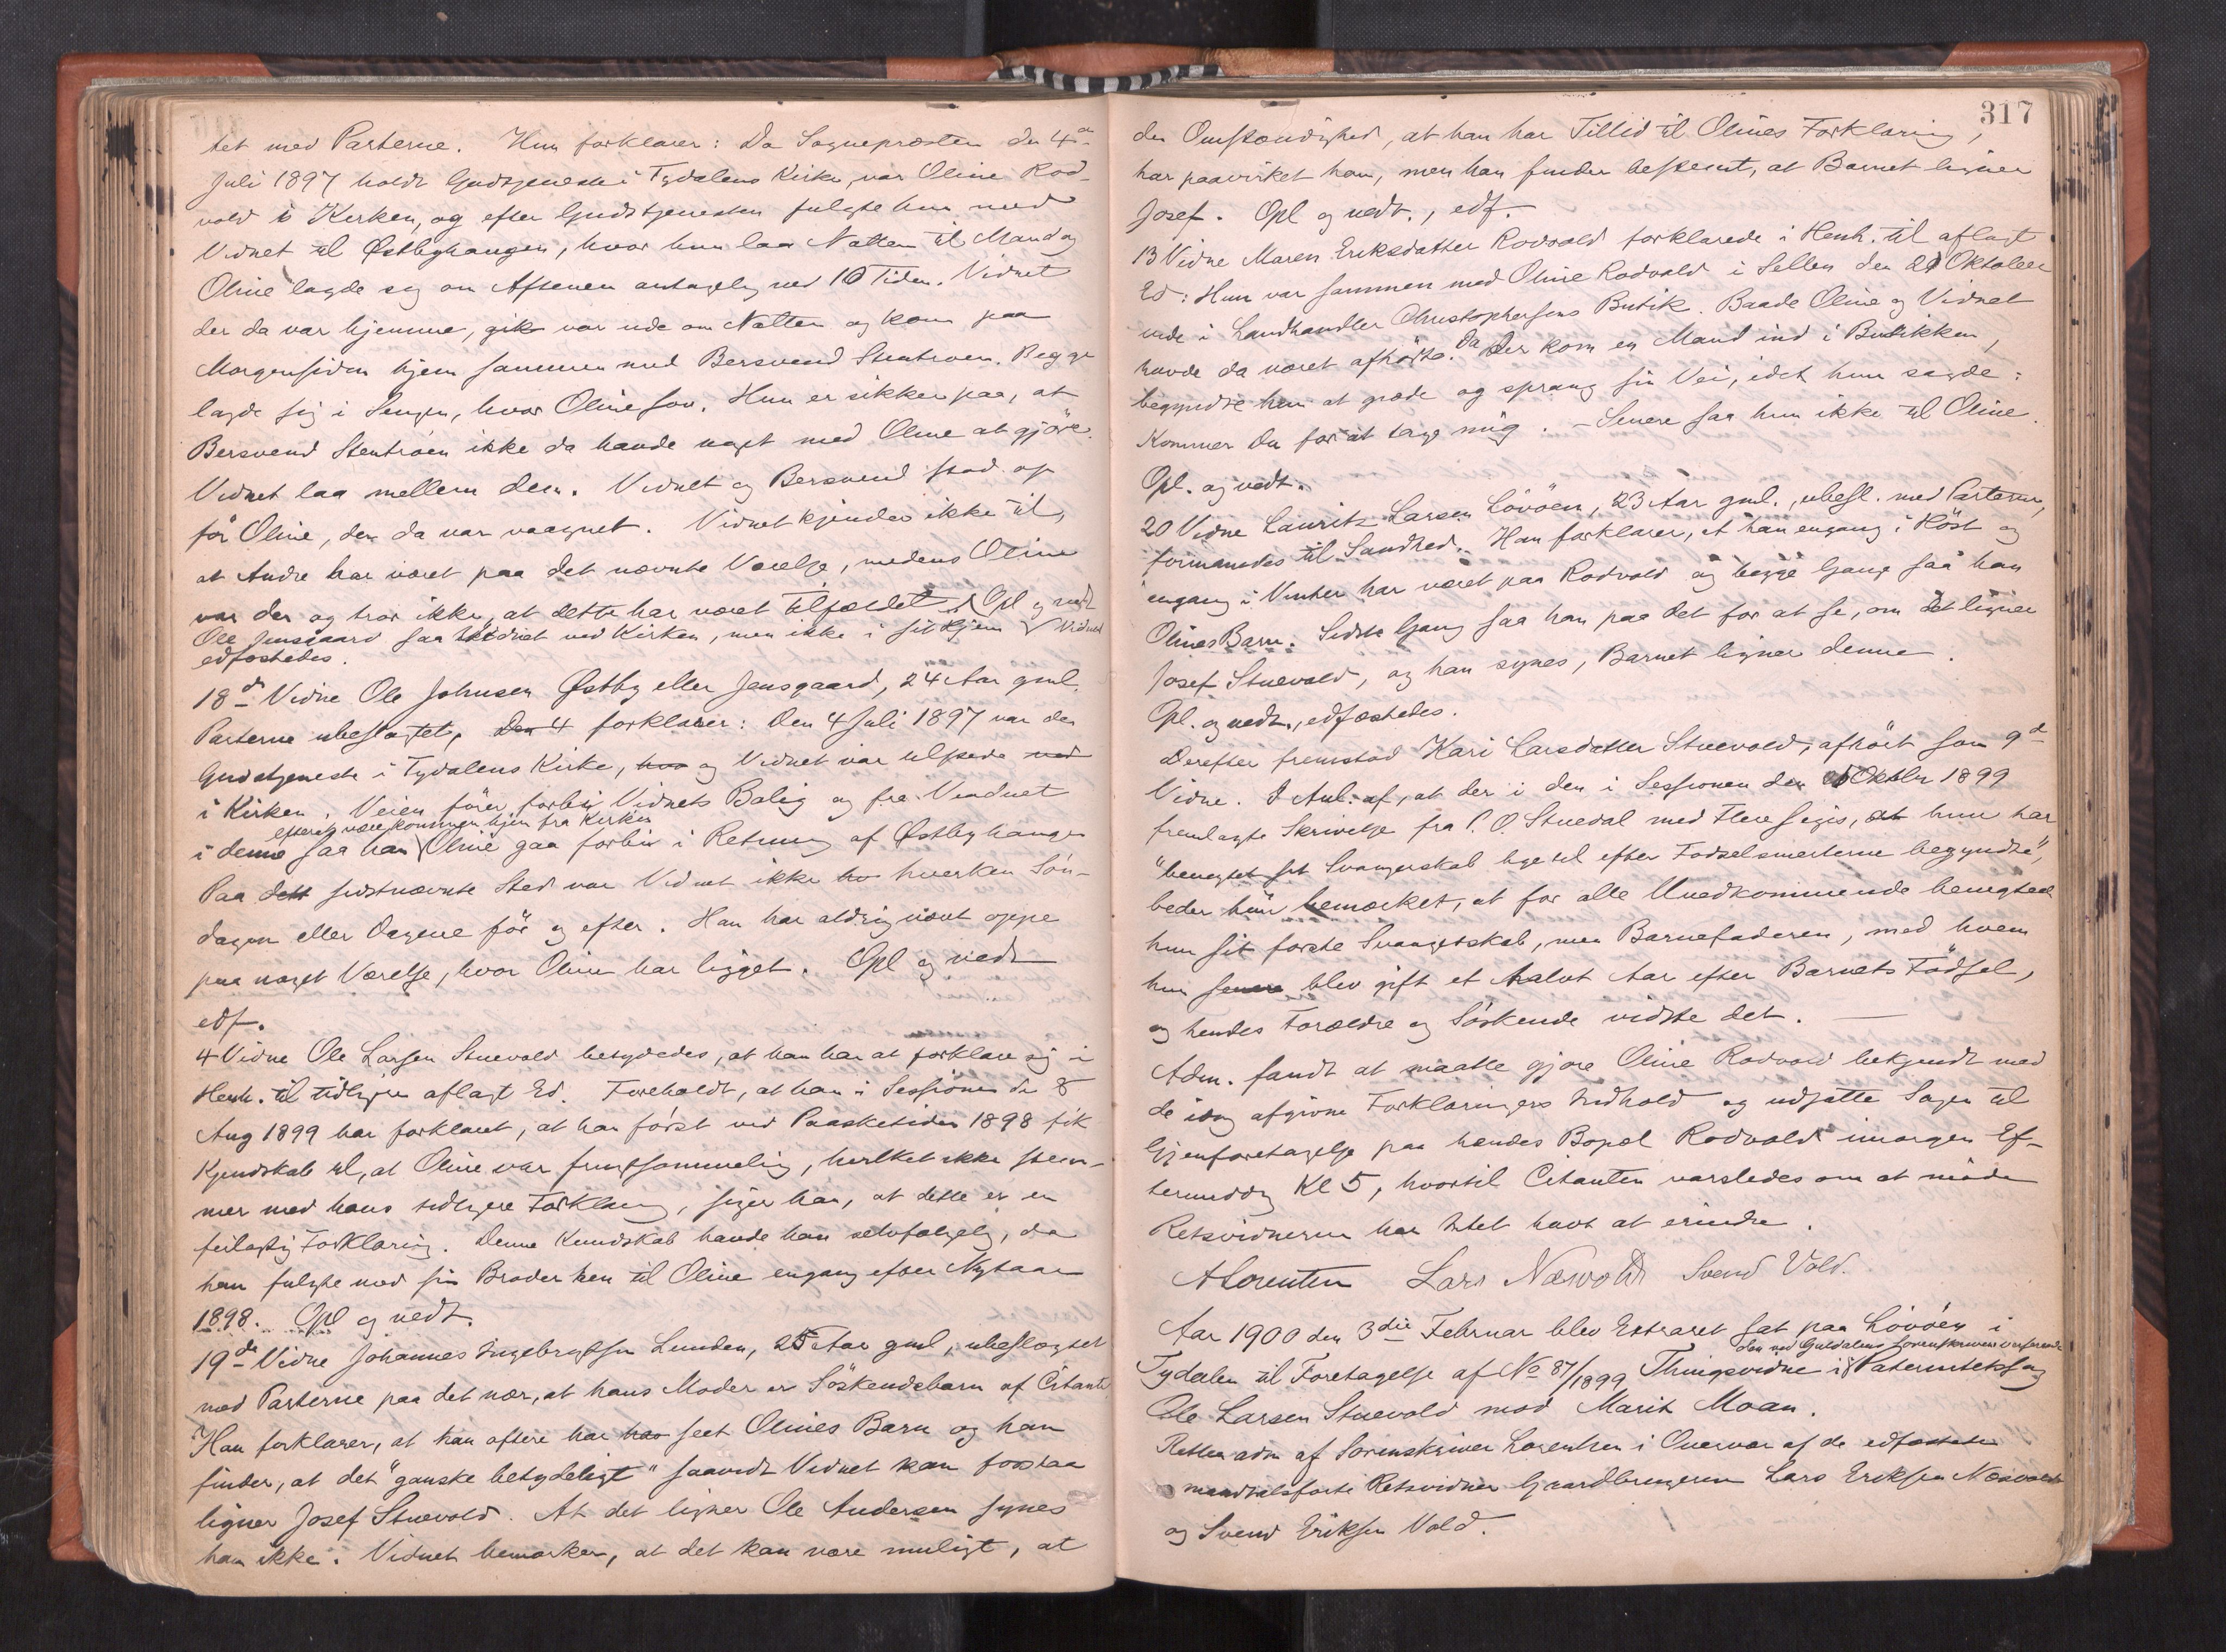 tet med Parterne. Hun forklarer: Da Sognepræsten den 4de
Juli 1897 holdt Gudstjeneste i Tydalens Kirke, var Oline Rod-
vold i Kirken, og efter Gudstjenesten fulgte hun med
Vidnet til Østbyhaugen, hvor hun laa Natten til Mandag
Oline lagde sig om Aftenen antagelig ved 10 Tiden. Vidnet
der da var hjemme, gik var ude om Natten og kom paa
Morgensiden hjem sammen med Bersvend Stentroen. Begge
lagde sig i Sengen, hvor Oline sov. Hun er sikker paa, at
Bersvend Stentroen ikke da havde noget med Oline at gjøre.
Vidnet laa mellem dem. Vidnet og Bersvend stod op
før Oline, der da var vaagnet. Vidnet kjender ikke til,
at Andre har været paa det nævnte Værelse, medens Oline
var der og tror ikke, at dette har været Tilfældet. Opl og vedt
Ole Jensgaard saa Vidnet ved Kirken, men ikke i sit Hjem Vidnet
edfæstedes.
18de Vidne Ole Johnsen Østby eller Jensgaard, 24 Aar gml.
Parterne ubeslægtet, Den 4 forklarer: Den 4 Juli 1897 var der
Gudstjeneste i Tydalens Kirke, hvo og Vidnet var tilstede ved
i Kirken. Veien fører forbi Vidnets Bolig og fra Vinduet
efter at være kommen hjem fra Kirken
i denne saa han Oline gaa forbi i Retning af Østbyhaugen
Paa dett sidstnævnte Sted var Vidnet ikke hv hverken Søn-
dagen eller Dagene før og efter. Han har aldrig været oppe
paa noget Værelse, hvor Oline har ligget. Opl og vedt
edf.
4 Vidne Ole Larsen Stuevold betydedes, at han har at forklare sig i
Henh. til tidligere aflagt Ed. Foreholdt, at han i Sessionen de 8
Aug 1899 har forklaret, at han først ved Paasketiden 1898 fik
Kjendskab til, at Oline var frugtsommelig, hvilket ikke stem-
mer med hans tidligere Forklaring, siger han, at dette er en
feilagtig Forklaring. Denne Kundskab havde han selvfølgelig, da
han fulgte med sin Broder hen til Oline engang efter Nytaar
1898. Opl og vedt.
19de Vidne Johannes Ingebrigtsen Lunden, 25 Aar gml, ubeslægtet
med Parterne paa det nær, at hans Moder er Søskendebarn af Citanten
Han forklarer, at han oftere har hav seet Olines Barn og han
finder, at det "ganske betydeligt" saavidt Vidnet kan forstaa
ligner Josef Stuevold. At det ligner Ole Andersen synes
han ikke. Vidnet bemærker, at det kan være muligt, at
317
den Omstændighed, at han har Tillid til Olines Forklaring,
har paavirket ham, men han finder bestemt, at Barnet ligner
Josef. Opl og vedt., edf.
13 Vidne Maren Eriksdatter Rodvold forklarede i Henh. til aflagt
Ed: Hun var sammen med Oline Rodvold i Selbu den 21 Oktober
inde i Landhandler Christophersens Butik. Baade Oline og Vidnet
havde da været afhørte. Da Der kom en Mand ind i Butikken,
begyndte hun at græde og sprang sin Vei, idet hun sagde:
Kommer Du for at tage mig. – Senere saa hun ikke til Oline.
Opl. og vedt.
20 Vidne Laurits Larsen Løvøen, 23 Aar gml., ubesl. med Parterne,
formanedes til Sandhed. Han forklarer, at han engang i Høst og
engang i Vinter har været paa Rodvold og begge Gange saa han
Olines Barn. Sidste Gang saa han paa det for at se, om det ligner
Josef Stuevold, og han synes, Barnet ligner denne.
Opl. og vedt., edfæstedes.
Derefter fremstod Kari Larsdatter Stuevold, afhørt som 9de
Vidne. I Anl. af, at der i den i Sessionen den Oktbr 1899
fremlagte Skrivelse fra P. O. Stuedal med Flere siges, at hun har
"benegtet sit Svangerskab lige til efter Fødselsmerterne begyndte",
beder hun bemærket, at for alle Uvedkommende benegtede
hun sit første Svangerskab, men Barnefaderen, med hvem
hun senere blev gift et halvt Aar efter Barnets Fødsel,
og hendes Forældre og Søskende vidste det.
Adm. fandt at maatte gjøre Oline Rodvold bekjendt med
de idag afgivne Forklaringers Indhold og udsatte Sagen til
Gjenforetagelse paa hendes Bopæl Rodvold imorgen Ef-
termiddag Kl 5, hvortil Citanten varsledes om at møde
Retsvidnerne har Intet havt at erindre.
ALorentzen Lars Næsvold Svend Vold.
Aar 1900 den 3die Februar blev Extraret sat paa Løvøen i
den ved Guldalens Sorenskriveri verserende
Tydalen til Foretagelse af No 87/1899 Thingsvidne i Paternitetssag
Ole Larsen Stuevold mod Marit Moan.
Retten adm af Sorenskriver Lorentzen i Overvær af de edfæstede
mandtalsførte Retsvidner Gaardbrugerne Lars Eriksen Næsvold
og Svend Eriksen Vold.